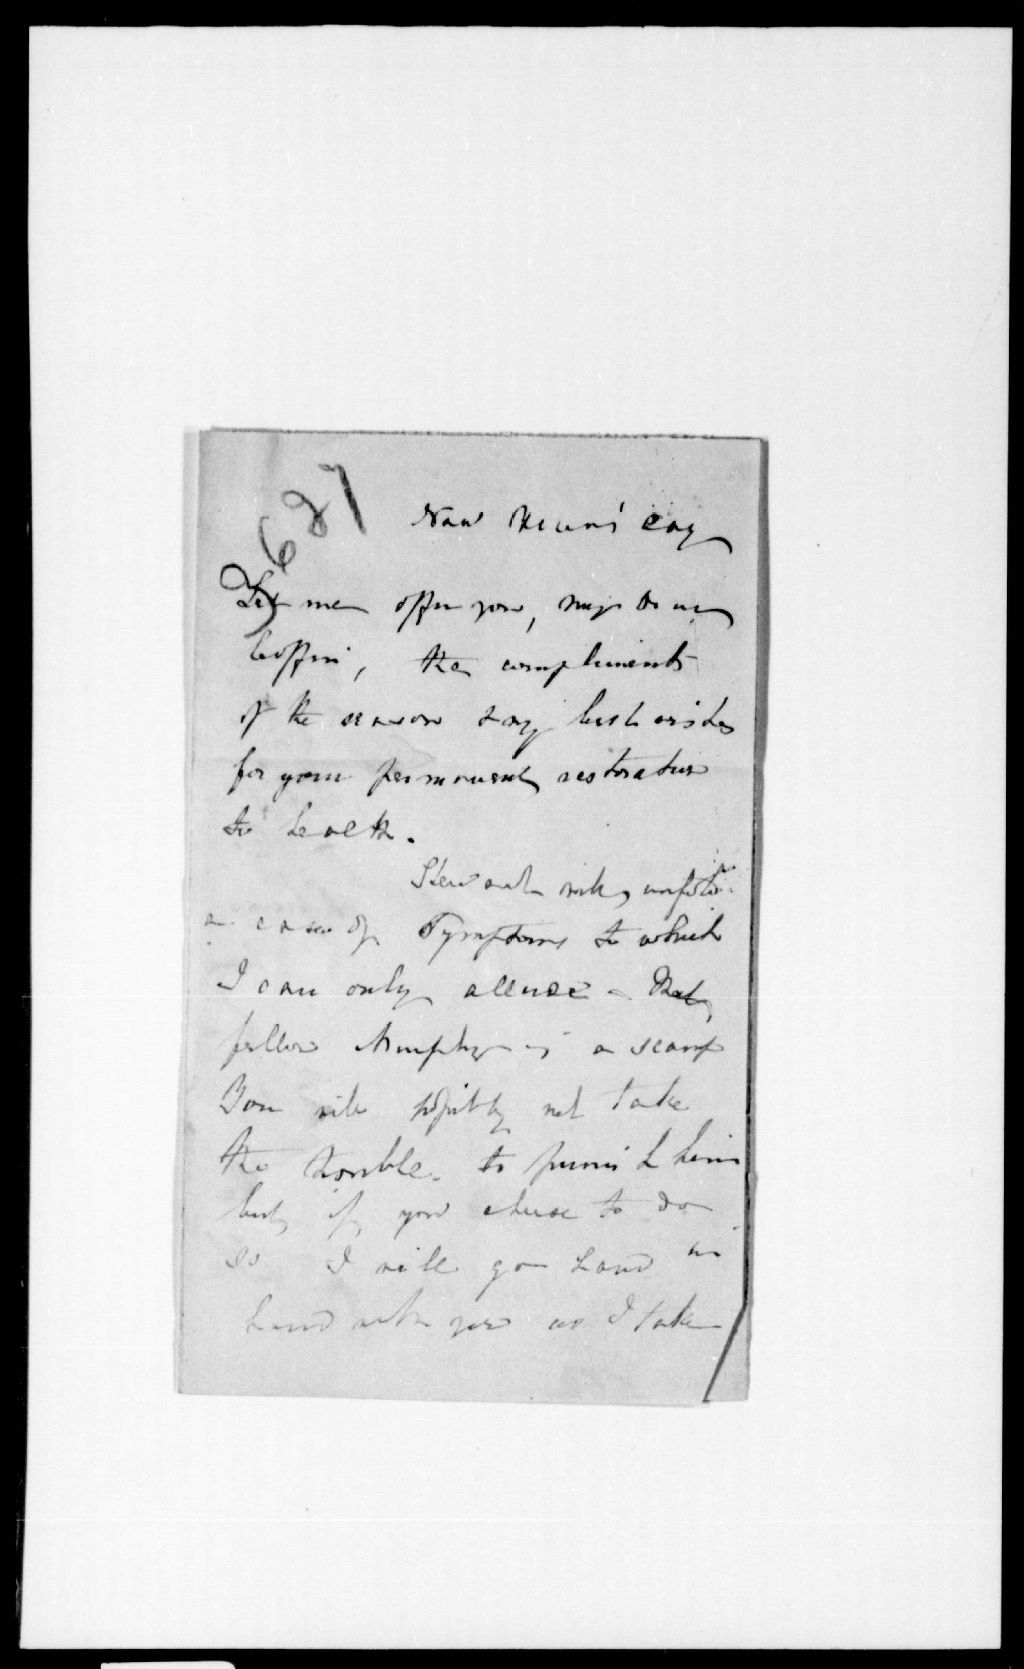 2627
New Year's Day
Let me offer you, my dear
Coffin, the compliments
of the season & my best wishes
for your permanent restoration
to health.
Stewart will unfold
a case of Symptoms to which
I can only allude - That
fellow Murphy is a scamp
You will possibly not take
the trouble to punish him
but if you chuse to do
so I will go hand in
hand with you as I take